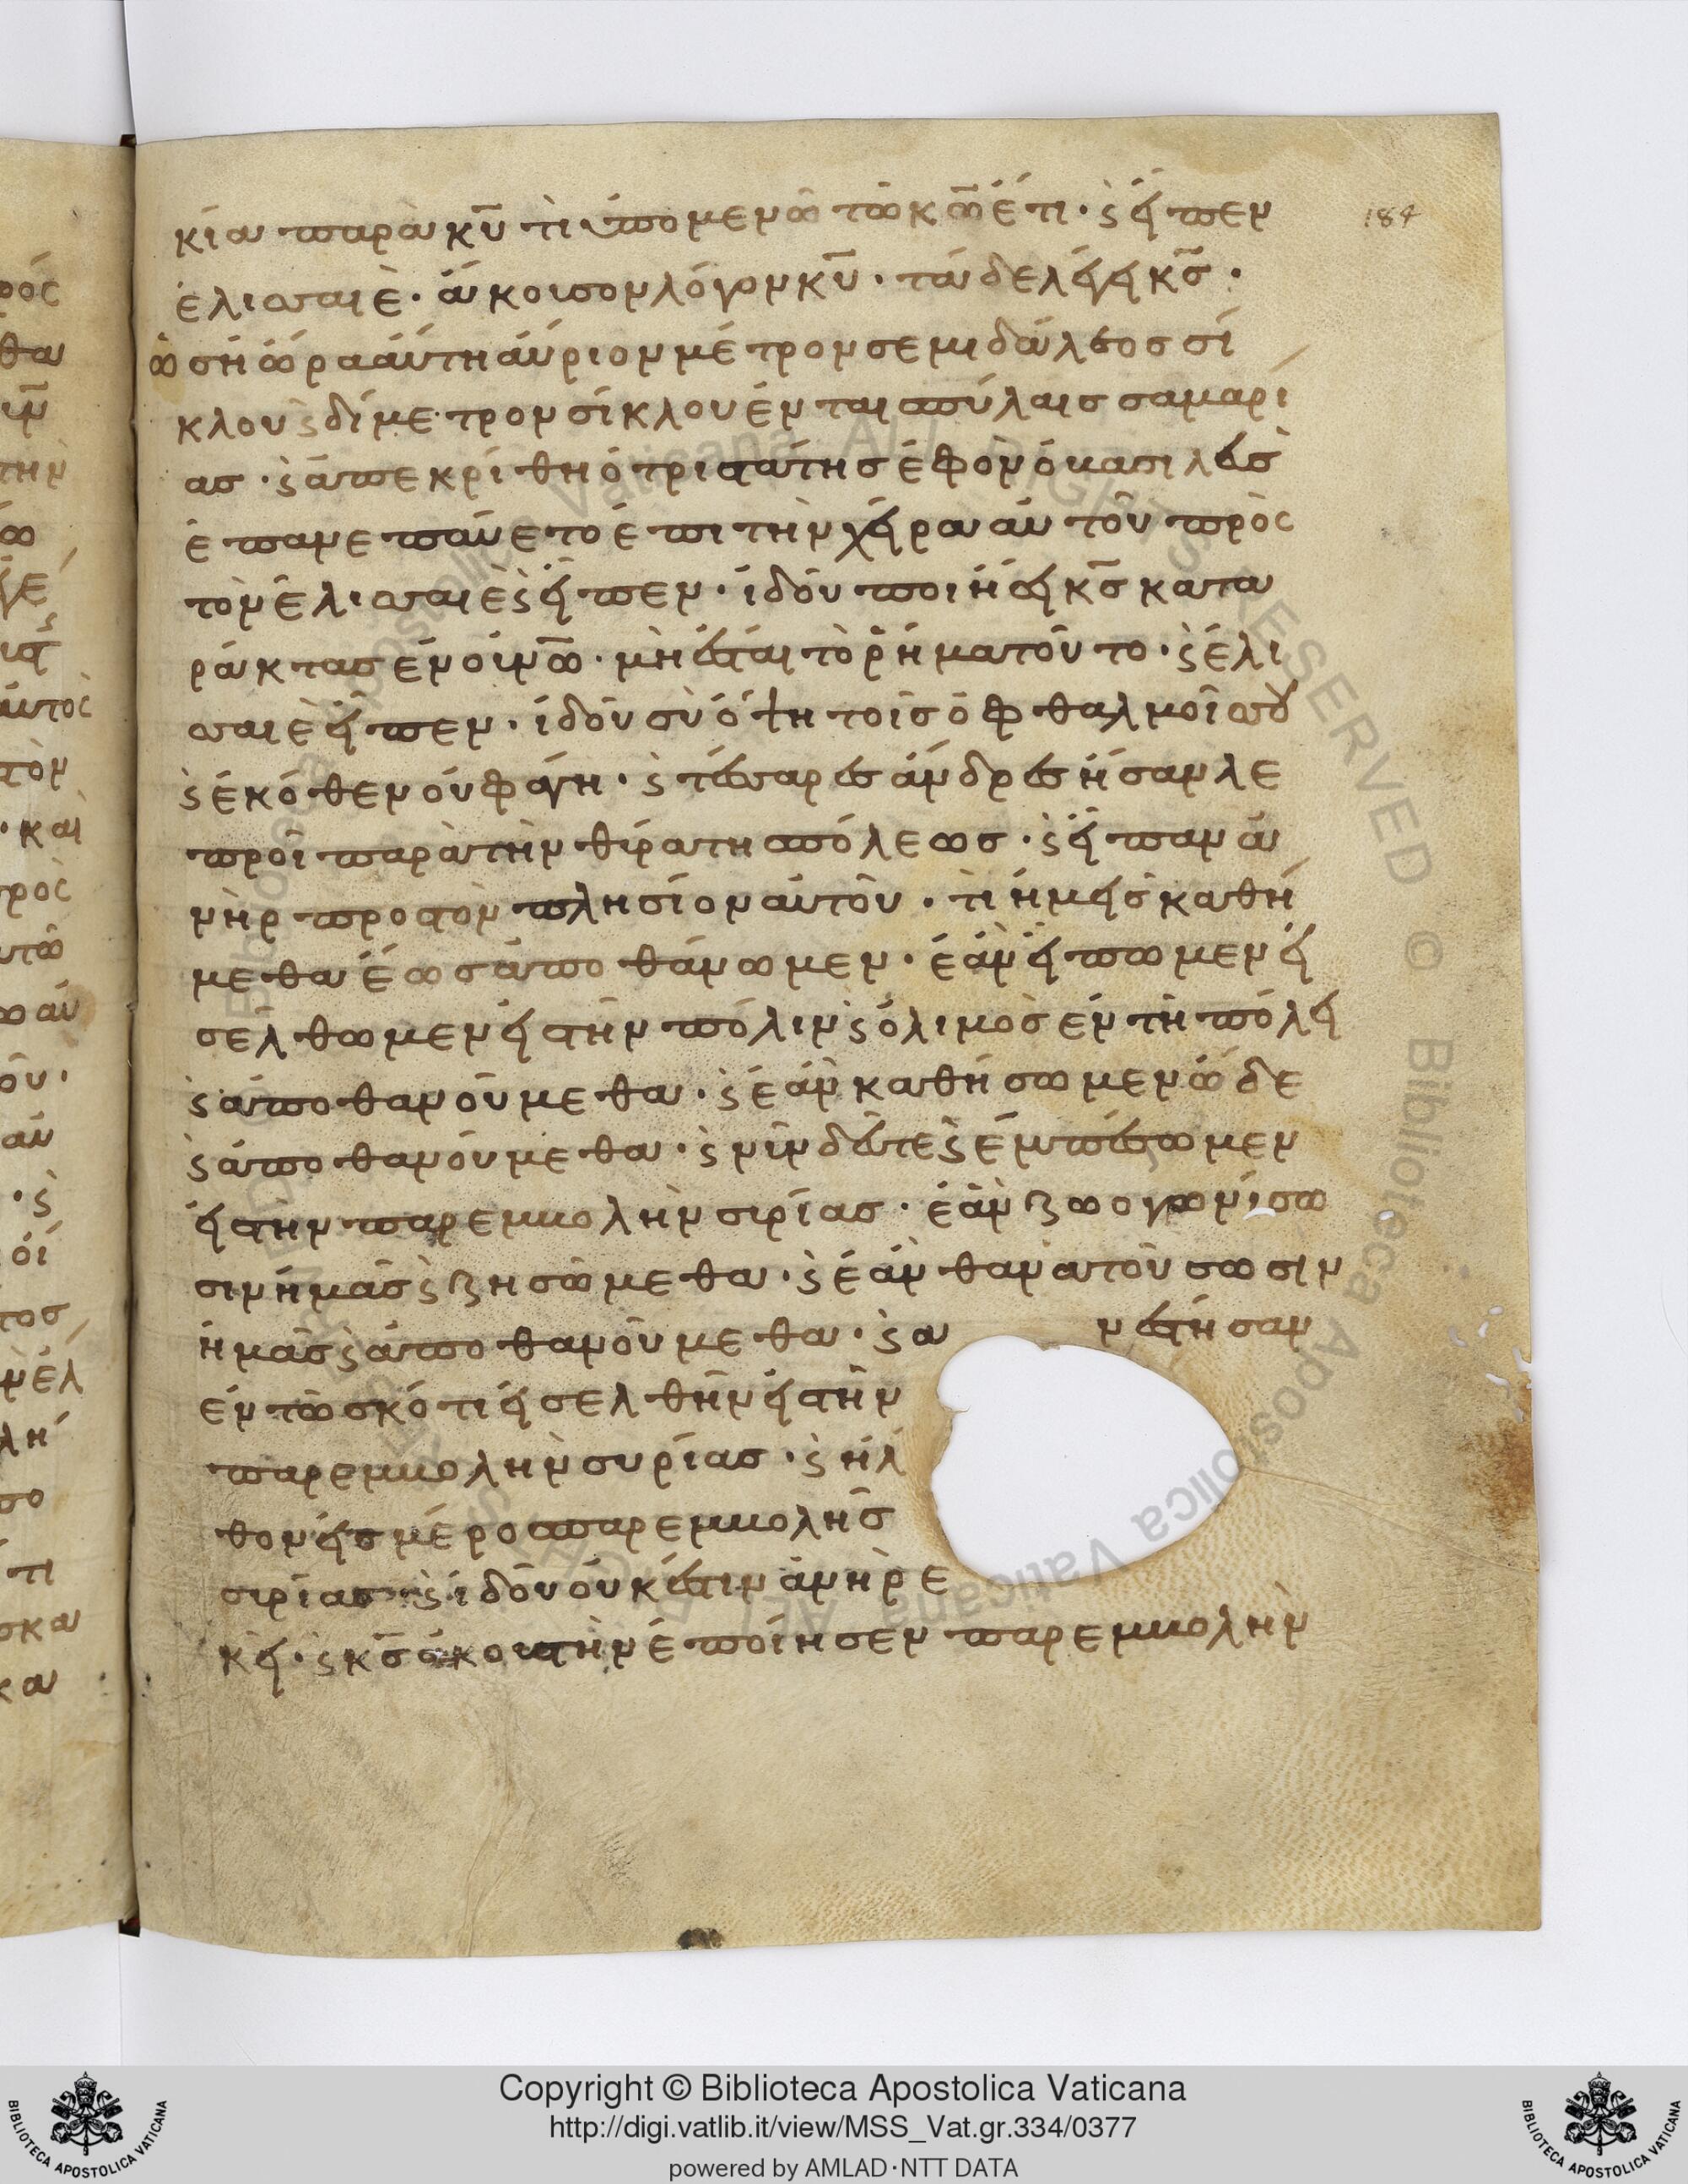 κία παρὰ κῡ τὶ ὑπομενῶ τῶ κω̄ ἔτι · ϛ̀ εἶπεν
ἐλισσαιὲ · ἄκοισον λόγον κῡ · τάδε λέγει κσ̄ ·
ὡσὴ ὥρα ἁύτη ἄυριον μέτρον σεμιδάλεος σί
κλου ϛ̀ δίμετρον σίκλου ἐν ταισ πύλαισ σαμαρί
ασ · ϛ̀ ἀπεκρίθη ὁ τριστάτησ ἐφ ὃν ὁ βασιλεὺσ
ἐπανεπάυετο ἐπι τὴν χεῖρα ἀυτοῦ πρὸς
τὸν ἐλισσαιὲ ϛ̀ εἶπεν · ἰδοὺ ποιήσει κσ̄ κατα
ράκτασ ἐν οὐνω̄ · μὴ ἔσται τὸ ῥῆμα τοῦτο · ϛ̀ ἐλι
σσαιὲ εἶπεν · ἰδοὺ σὺ ὄψη τοῖσ ὀφθαλμοῖσ σου
ϛ̀ ἐκεῖθεν οὐ φάγη · ϛ̀ τέσσαρεσ ἄνδρεσ ἦσαν λε
προὶ παρὰ τὴν θύραν τησ πόλεωσ · ϛ̀ εἶπαν ἀ
νὴρ προσ τὸν πλησίον ἀυτοῦ · τὶ ἡμεῖσ καθή
μεθα ἕωσ ἀποθάνωμεν · ἐὰν εἴπωμεν εἰ
σέλθωμεν εἰσ τὴν πόλιν ϛ̀ ὁ λιμὸσ ἐν τῆ πόλει
ϛ̀ ἀποθανούμεθα · ϛ̀ ἐὰν καθήσωμεν ὧδε
ϛ̀ ἀποθανούμεθα · ϛ̀ νῦν δεῦτε ϛ̀ ἐμπέσωμεν
εἰσ τὴν παρεμβολὴν συρίασ · ἐὰν ζωογωνίσω
σιν ἡμᾶσ ϛ̀ ζησώμεθα · ϛ̀ ἐὰν θανατοῦσωσιν
ἡμᾶσ ϛ̀ ἀποθανούμεθα · ϛ̀ α νέστησαν
ἐν τῶ σκότι εἰσελθῆν εἰσ τὴν
παρεμβολὴν συρίασ · ϛ̀ ἦλ
θον εἰσ μέροσ παρεμβολῆσ
συρίασ · ϛ̀ ἰδοὺ οὐκ ἔστιν ἀνὴρ ἐ
κεῖ · ϛ̀ κσ̄ ἀκουστὴν ἐποίησεν παρεμβολὴν
184
ρός
θα
την
άυτὸς
τὸν
· καὶ
ρὸς
υτῶ
οῦ ·
ἀυ
· ϛ̀
ὁι
τοσ
ν ἐλ
λη
σο
τι
σκα
κα
Copyright © Biblioteca Apostolica Vaticana
http://digi.vatlib.it/view/MSS_Vat.gr.334/0377
powered by AMLAD·NTT DATA
BIBLIOTECA APOSTOLICA VATICANA
BIBLIOTECA APOSTOLICA VATICANA